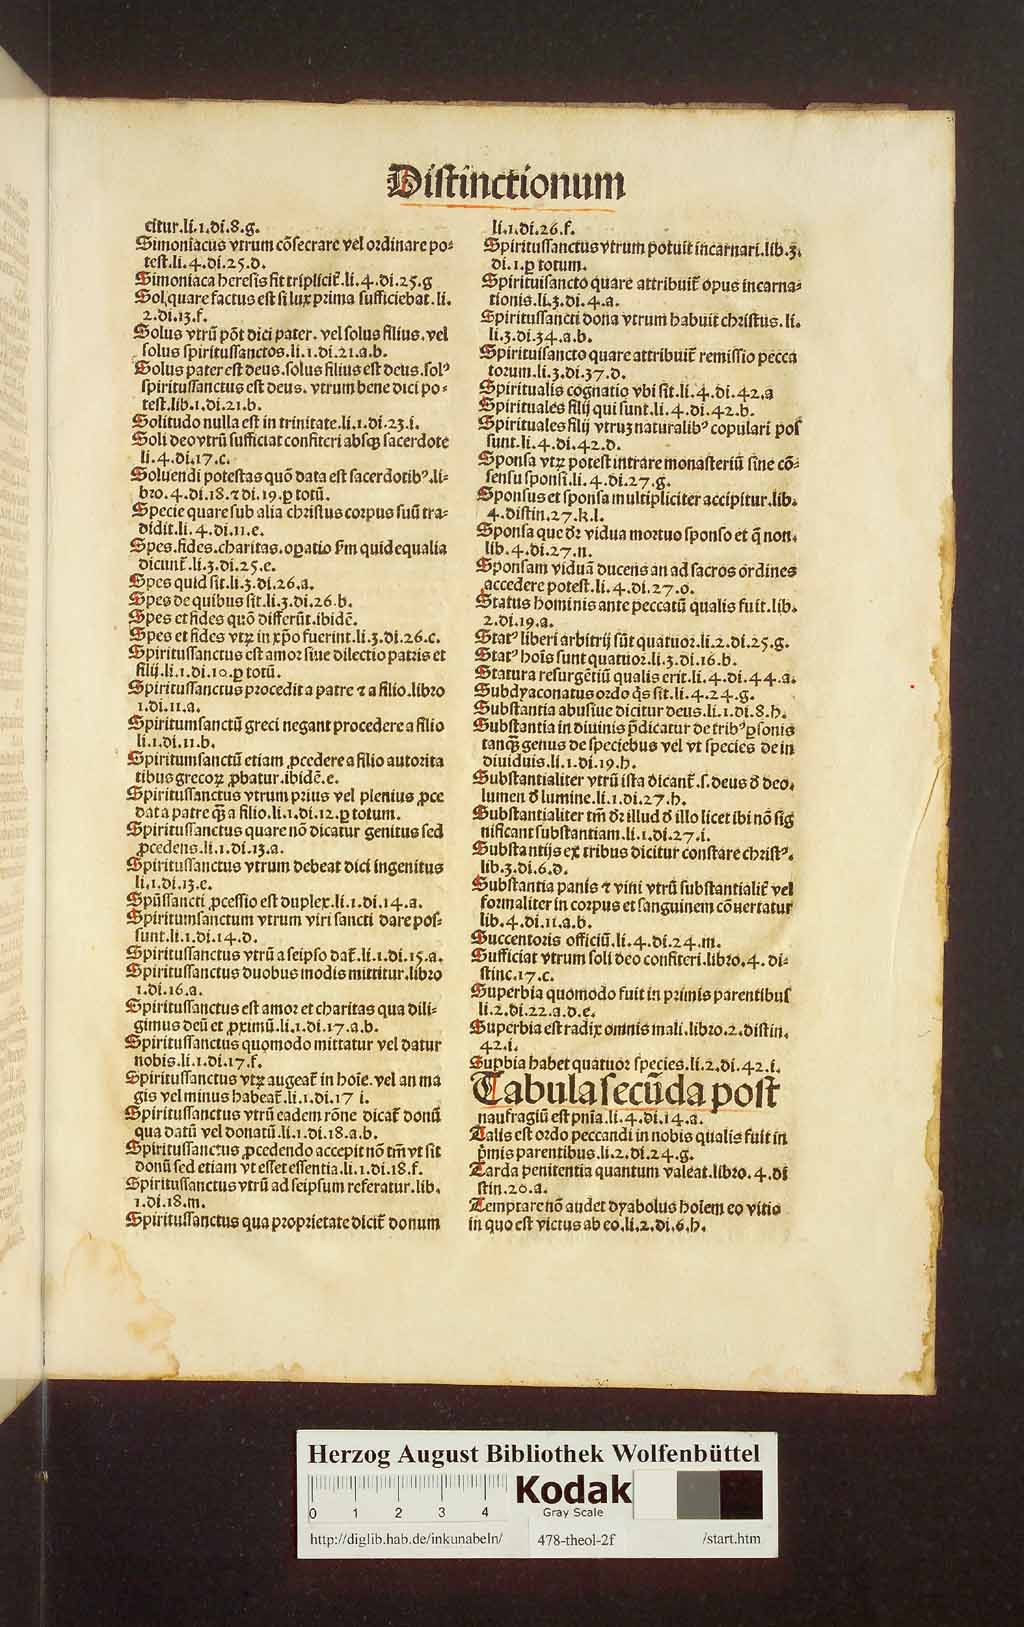 Distinctionum
citur.li.1.di.8.g.
Simoniacus vtrum cōsecrare vel ordinare po⸗
test.li.4.di.25.d.
Simoniaca heresis fit triplicit̄.li.4.di.25.g
Sol,quare factus est si lux prima sufficiebat.li.
2.di.13.f.
Solus vtrū pōt dici pater.vel solus filius.vel
solus spiritussanctos.li.1.di.21.a.b.
Solus pater est deus.solus filius est deus.solꝰ
spiritussanctus est deus. vtrum bene dici po⸗
test.lib.1.di.21.b.
Solitudo nulla est in trinitate.li.1.di.23.i.
Soli deo vtrū sufficiat confiteri absqꝫ sacerdote
li.4.di.17.c.
Soluendi potestas quō data est sacerdotibꝰ.li⸗
bro.4.di.18.⁊ di.19.ꝑ totū.
Specie quare sub alia christus corpus suū tra⸗
didit.li.4.di.11.e.
Spes.fides.charitas.oꝑatio ẜm quid equalia
dicunt̄.li.3.di.25.e.
Spes quid sit.li.3.di.26.a.
Spes de quibus sit.li.3.di.26.b.
Spes et fides quō differūt.ibidē.
Spes et fides vtꝝ in xp̄o fuerint.li.3.di.26.c.
Spiritussanctus est amor siue dilectio patris et
filij.li.1.di.10.ꝑ totū.
Spiritussanctus procedit a patre ⁊ a filio.libro
1.di.11.a.
Spiritumsanctū greci negant procedere a filio
li.1.di.11.b.
Spiritumsanctū etiam ꝓcedere a filio autorita
tibus grecoꝝ ꝓbatur.ibidē.e.
Spiritussanctus vtrum prius vel plenius ꝓce
dat a patre qꝫ̄ a filio.li.1.di.12.ꝑ totum.
Spiritussanctus quare nō dicatur genitus sed
ꝓcedens.li.1.di.13.a.
Spiritussanctus vtrum debeat dici ingenitus
li.1.di.13.e.
Spūssancti ꝓcessio est duplex.li.1.di.14.a.
Spiritumsanctum vtrum viri sancti dare pos⸗
sunt.li.1.di.14.d.
Spiritussanctus vtrū a seipso dat̄.li.1.di.15.a.
Spiritussanctus duobus modis mittitur.libro
1.di.16.a.
Spiritussanctus est amor et charitas qua dili⸗
gimus deū et ꝓximū.li.1.di.17.a.b.
Spiritussanctus quomodo mittatur vel datur
nobis.li.1.di.17.f.
Spiritussanctus vtꝝ augeat̄ in hoīe.vel an ma
gis vel minus habeat̄.li.1.di.17 i.
Spiritussanctus vtrū eadem rōne dicat̄ donū
qua datū vel donatū.li.1.di.18.a.b.
Spiritussanctus ꝓcedendo accepit nō tm̄ vt sit
donū sed etiam vt esset essentia.li.1.di.18.f.
Spiritussanctus vtrū ad seipsum referatur.lib.
1.di.18.m.
Spiritussanctus qua proprietate dicit̄ donum
li.1.di.26.f.
Spiritussanctus vtrum potuit incarnari.lib.3.
di.1.ꝑ totum.
Spirituisancto quare attribuit̄ opus incarna⸗
tionis.li.3.di.4.a.
Spiritussancti dona vtrum habuit christus.li.
li.3.di.34.a.b.
Spirituisancto quare attribuit̄ remissio pecca
torum.li.3.di.37.d.
Spiritualis cognatio vbi sit.li.4.di.42.a
Spirituales filij qui sunt.li.4.di.42.b.
Spirituales filij vtruꝫ naturalibꝰ copulari pos
sunt.li.4.di.42.d.
Sponsa vtꝝ potest intrare monasteriū sine cō⸗
sensu sponsi.li.4.di.27.g.
Sponsus et sponsa multipliciter accipitur.lib.
4.distin.27.k.l.
Sponsa que dr̄ vidua mortuo sponso et q̄ non.
lib.4.di.27.n.
Sponsam viduā ducens an ad sacros ordines
accedere potest.li.4.di.27.o.
Status hominis ante peccatū qualis fuit.lib.
2.di.19.a.
Statꝰ liberi arbitrij sūt quatuor.li.2.di.25.g.
Statꝰ hoīs sunt quatuor.li.3.di.16.b.
Statura resurgētiū qualis erit.li.4.di.44.a.
Subdyaconatus ordo q̄s sit.li.4.24.g.
Substantia abusiue dicitur deus.li.1.di.8.h.
Substantia in diuinis p̄dicatur de tribꝰ ꝑsonis
tanqꝫ̄ genus de speciebus vel vt species de in
diuiduis.li.1.di.19.h.
Substantialiter vtrū ista dicant̄.s.deus d̄ deo.
lumen d̄ lumine.li.1.di.27.h.
Substantialiter tm̄ dr̄ illud d̄ illo licet ibi nō sig
nificant substantiam.li.1.di.27.i.
Substantijs ex tribus dicitur constare christꝰ.
lib.3.di.6.d.
Substantia panis ⁊ vini vtrū substantialit̄ vel
formaliter in corpus et sanguinem cōuertatur
lib.4.di.11.a.b.
Succentoris officiū.li.4.di.24.m.
Sufficiat vtrum soli deo confiteri.libro.4.di⸗
stinc.17.c.
Superbia quomodo fuit in primis parentibus
li.2.di.22.a.d.e.
Superbia est radix omnis mali.libro.2.distin.
42.i.
Suꝑbia habet quatuor species.li.2.di.42.i.
Tabula secūda post
naufragiū est pn̄ia.li.4.di.14.a.
Talis est ordo peccandi in nobis qualis fuit in
p̄mis parentibus.li.2.di.24.g.
Tarda penitentia quantum valeat.libro.4.di
stin.20.a.
Temptare nō audet dyabolus hoīem eo vitio
in quo est victus ab eo.li.2.di.6.h.
Herzog August Bibliothek Wolfenbüttel
0 1 2 3 4
Kodak
Gray Scale
http://diglib.hab.de/inkunabeln/ 478-theol-2f /start.htm